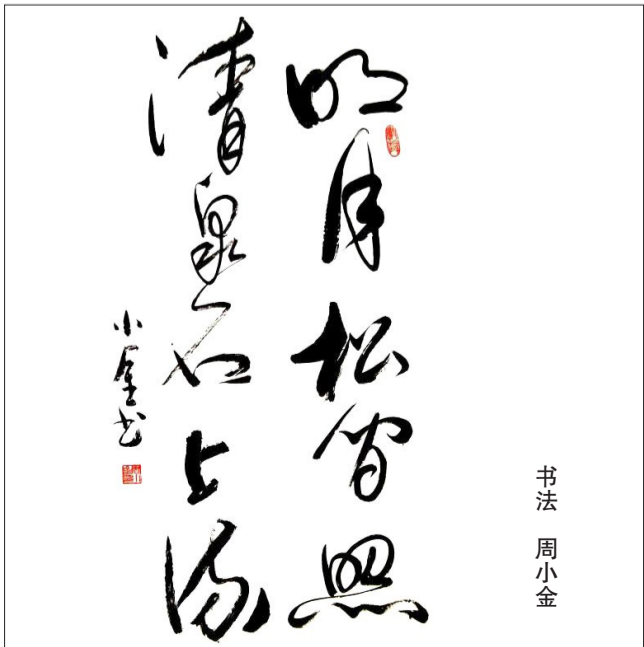 明月松间照
清泉石上流
小金书
书法 周小金